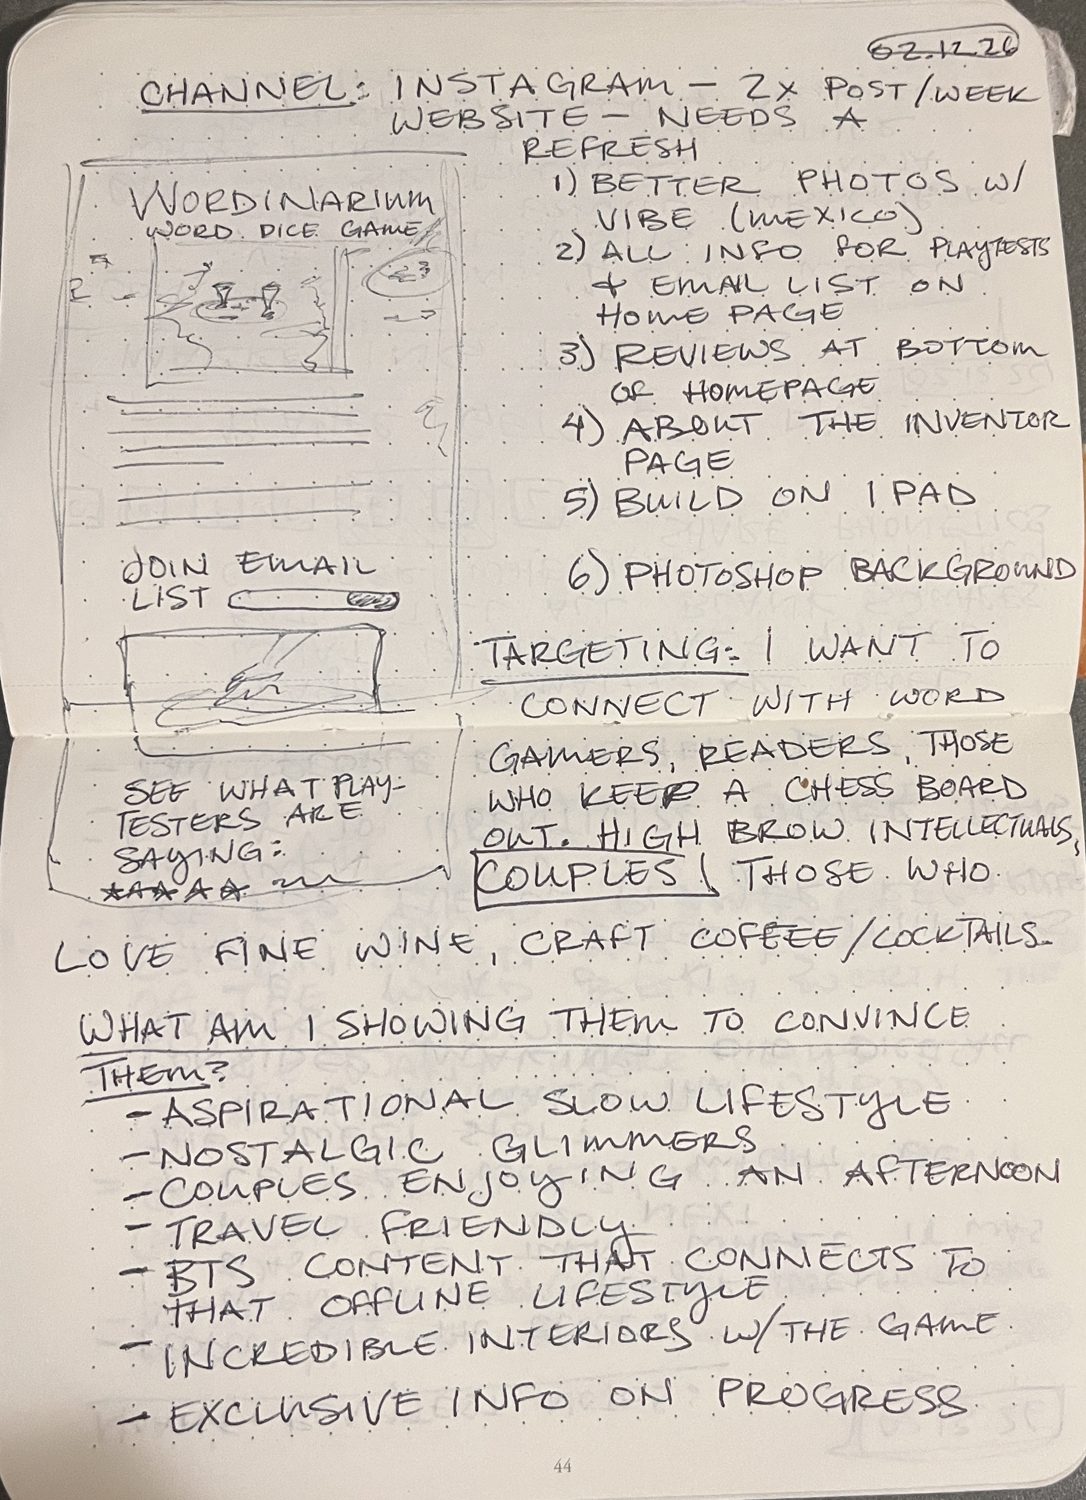 02.12.26
CHANNEL: INSTAGRAM – 2X POST/WEEK
WEBSITE – NEEDS A
REFRESH
1) BETTER PHOTOS W/
VIBE (MEXICO)
2) ALL INFO FOR PLAYTESTS
+ EMAIL LIST ON
HOME PAGE
3) REVIEWS AT BOTTOM
OF HOMEPAGE
4) ABOUT THE INVENTOR
PAGE
5) BUILD ON IPAD
6) PHOTOSHOP BACKGROUND
WORDINARIUM
WORD DICE GAME
JOIN EMAIL
LIST
SEE WHAT PLAY-
TESTERS ARE
SAYING:
TARGETING: I WANT TO
CONNECT WITH WORD
GAMERS, READERS, THOSE
WHO KEEP A CHESS BOARD
OUT. HIGH BROW INTELLECTUALS,
COUPLES! THOSE WHO
LOVE FINE WINE, CRAFT COFFEE/COCKTAILS.
WHAT AM I SHOWING THEM TO CONVINCE
THEM?
– ASPIRATIONAL SLOW LIFESTYLE
– NOSTALGIC GLIMMERS
– COUPLES ENJOYING AN AFTERNOON
– TRAVEL FRIENDLY
– BTS CONTENT THAT CONNECTS TO
THAT OFFLINE LIFESTYLE
– INCREDIBLE INTERIORS W/THE GAME
– EXCLUSIVE INFO ON PROGRESS
44